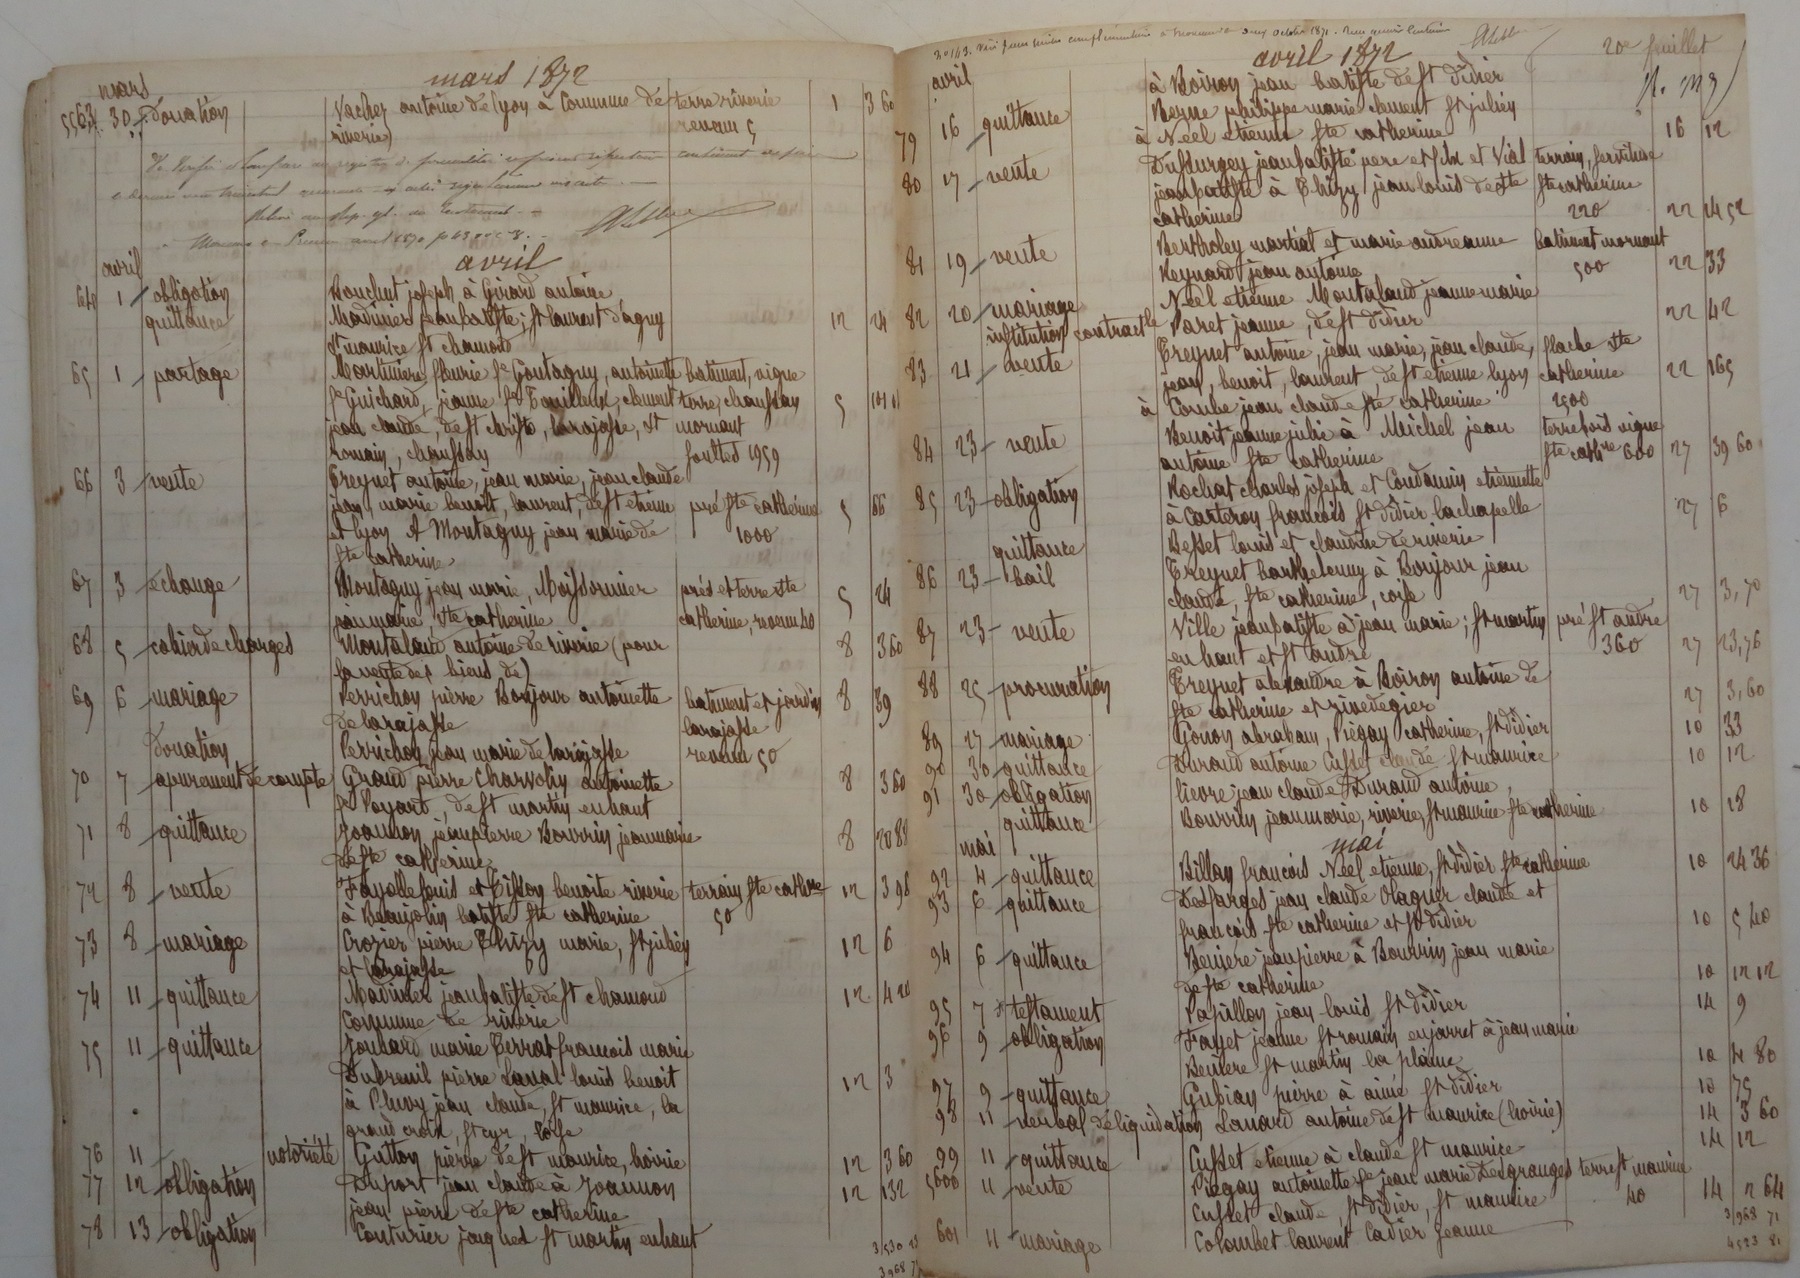 mars
mars 1872
5563 30 donation Vachez antoine de lyon à Commune de terre riverie 1 3 60
riverie revenu 5
avril
avril
64 1 obligation Bouchut joseph à Girard antoine
quittance Madinier jeanbatiste; st laurent d'agny 12 24
st maurice st chamond
65 1 partage Martiniere fleurie fe Goutagny, antoinette batiment, vigne
fe Guichard, jeanne fe Bouilleux, clement terre, chaussan 5
jean claude, de st christo, larajasse, st mornant
romain, chaussan soulted 1959
66 3 vente Treynet antoine, jean marie, jean claude
jean, marie benoit, laurent, de st etienne pré ste catherine 5 66
et lyon A Montagny jean marie de 1000
ste catherine
67 3 echange Montagny jean marie, Moissonnier prés et terre ste 5 24
jean marie, ste catherine catherine, revenu 40
68 5 cahier de charges Montaland antoine de riverie (pour 8 3 60
la vente des biens de)
69 6 mariage Perrichon pierre Bonjour antoinette batiment et jardin 8 39
de larajasse larajasse
donation Perrichon jean marie de larajasse revenu 50
70 7 apurement de compte Giraud pierre Charvolin antoinette 8 3 60
fe Payart, de st martin en haut
71 8 quittance Joannon jeanpierre Bourrin jeanmarie 8 20 88
de ste catherine
72 8 vente Fayolle louis et Tisson benoite riverie terrain ste cathne 12 3 96
à Beaujolin batiste ste catherine 50
73 8 mariage Crozier pierre Thizy marie, st julien 12 6
et larajasse
74 11 quittance Madinier jeanbatiste de st chamond 12 4 20
Commune de riverie
75 11 quittance Jouhard marie Terrat francois marie
Dubreuil pierre Lanal louis benoit 12 3
à Pluvy jean claude, st maurice, la
grand croix, st cyr, Coise
76 11 notoriété Guitton pierre de st maurice, hoirie 12 3 60
77 12 obligation Duport jean claude à Joannon 12 132
jean pierre de ste catherine
78 13 obligation Couturier jacques st martin enhaut
3/530
3968
avril 1872
20e feuillet
avril
à Boiron jean batiste de st didier
79 16 quittance Beyne philippe marie clement st julien
à Néel etienne ste catherine 16 12
80 17 vente Dussurgey jeanbatiste pere et fils et Vial terrain, servitude
jeanbatiste à Thizy jean louis de ste ste catherine
catherine 220 22 14 52
81 19 vente Bertholey martial et marie andreanne batiment mornant
Reynard jean antoine 500 22 33
82 20 mariage Néel etienne Montaland jeanne marie
institution contractlle Paret jeanne, de st didier 22 42
83 21 vente Treynet antoine, jean marie, jean claude, flache ste
jean, benoit, laurent, de st etienne lyon catherine 22 165
à Combe jean claude ste catherine 2500
84 23 vente Benoit jeanne julie à Meichel jean terre bois vigne
antoine ste catherine ste cathne 600 27 39 60
85 23 obligation Rochat charles joseph et Condamin etiennette
à Carteron francois st didier lachapelle 27 6
quittance Besset louis et claudine de riverie
86 23 bail Treynet barthelemy à Bonjour jean
claude, ste catherine, coise 27 3,70
87 23 vente Ville jeanbatiste à jean marie; st martin pré st andre
enhaut et st andré 360 27 23,76
88 25 procuration Treynet alexandre à Boiron antoine de
ste catherine et rivedegier 27 3,60
89 27 mariage Gonon abraham, Piégay catherine, st didier 10 33
90 30 quittance Durand antoine Cusset claude st maurice 10 12
91 30 obligation lievre jean claude Durand antoine
quittance Bourrin jeanmarie, riverie, st maurice ste catherine 10 28
mai
mai
92 4 quittance Billay francois Néel etienne, st didier ste catherine 10 24 36
93 6 quittance Desfarges jean claude Olagner claude et
francois ste catherine et st didier 10 5 40
94 6 quittance Beniere jeanpierre à Bourrin jean marie
de ste catherine 10 12 12
95 7 testament Papillon jean louis st didier 14 9
96 9 obligation Fayet jeanne st romain enjarret à jean marie
Beniere st martin la plaine 10 4 80
97 9 quittance Gubian pierre à aimé st didier 10 75
98 11 verbal de liquidation Lanard antoine de st maurice (hoirie) 14 3 60
99 11 quittance Cusset etienne à claude st maurice 14 12
5600 11 vente Piegay antoinette fe jean marie Desgranges terre st maurice
Cusset claude, st didier, st maurice 40 14 2 64
601 11 mariage Colombet laurent Cadier jeanne
3/968 71
4523 81